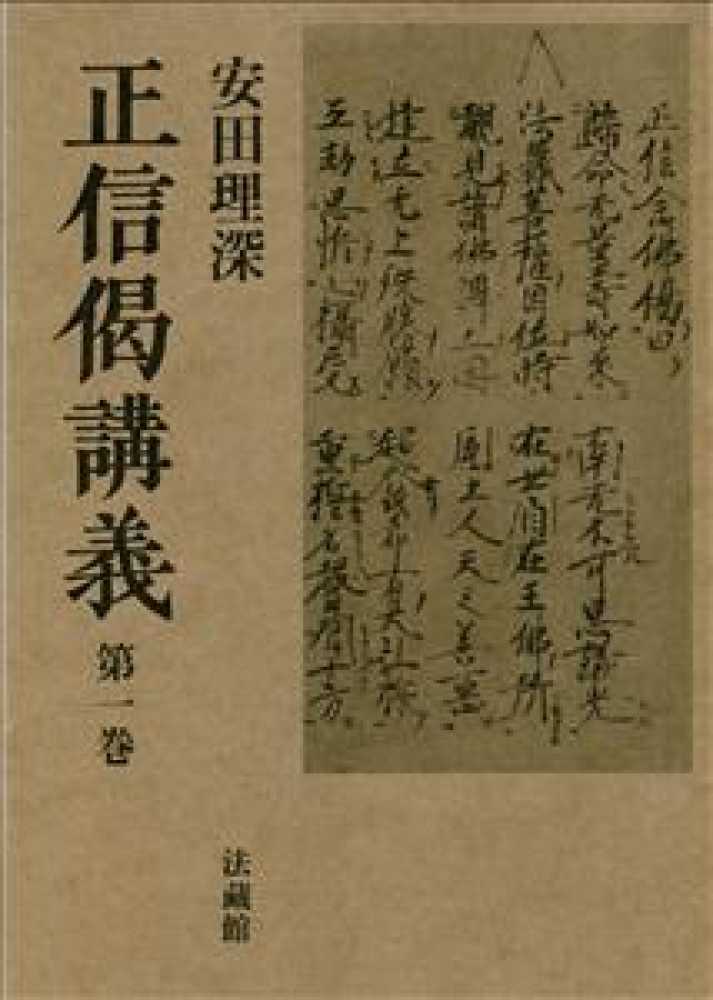 安田理深
正信偈講義 第一巻
法藏館
正信念佛偈曰
歸命无量壽如來 南无不可思議光
法藏菩薩因位時 在世自在王佛所
覩見諸佛淨土因 國土人天之善惡
建立无上殊勝願 超發希有大弘誓
五劫思惟之攝受 重誓名聲聞十方